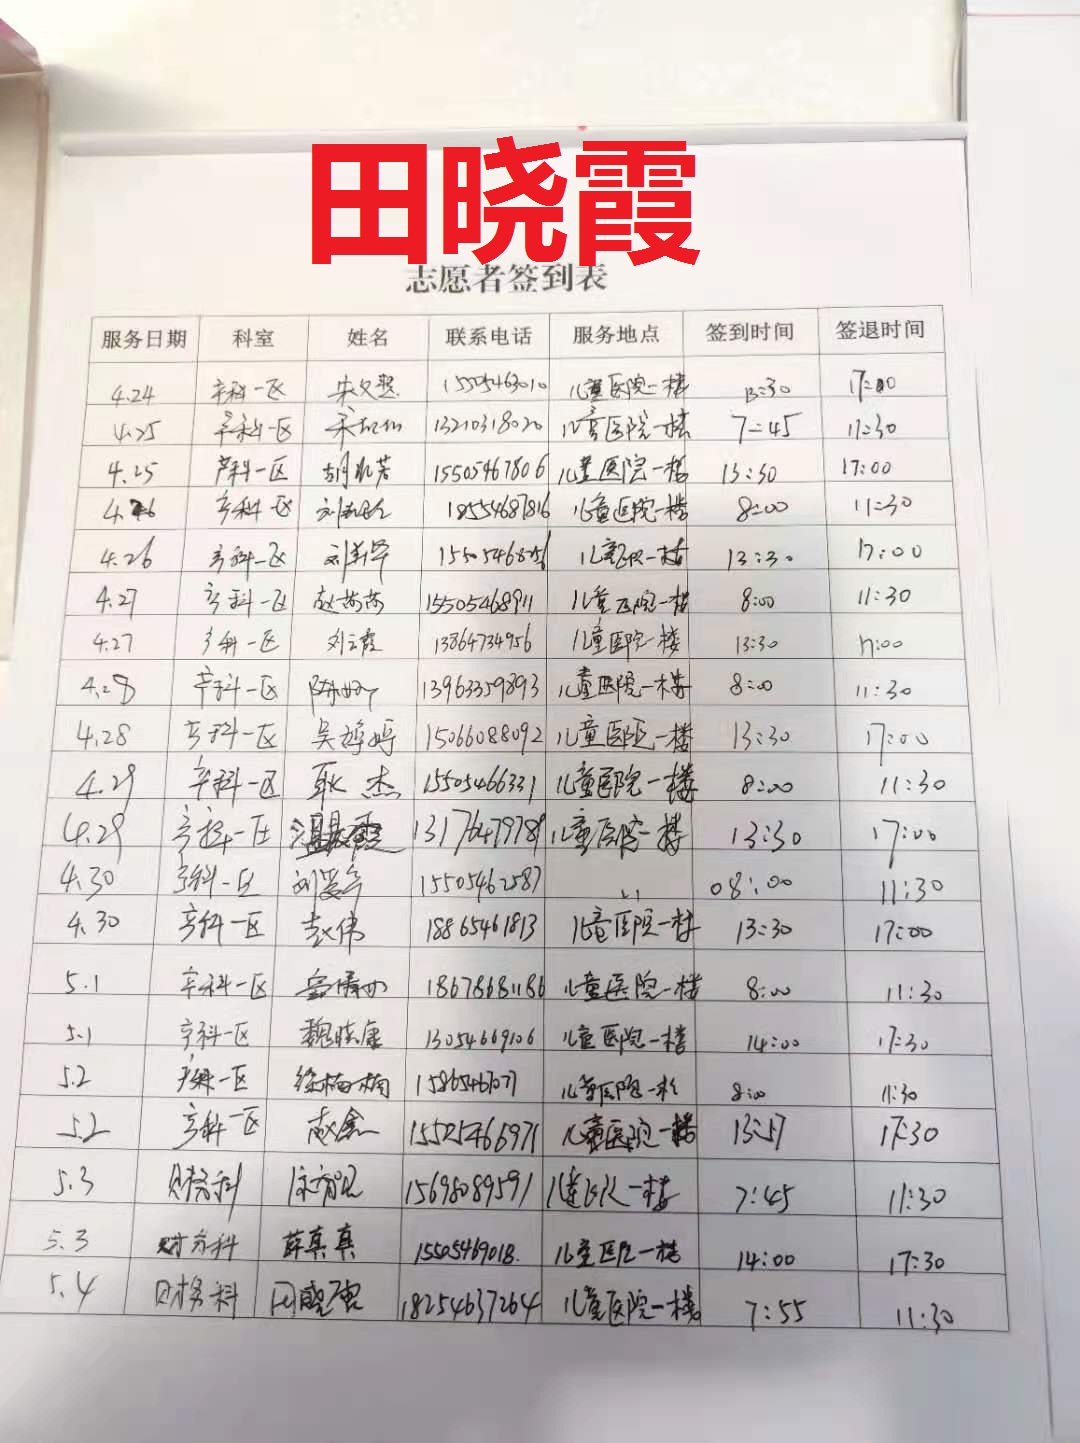 田晓霞
志愿者签到表
服务日期 科室 姓名 联系电话 服务地点 签到时间 签退时间
4.24 产科一区 15505463010 儿童医院一楼 13:30 17:00
4.25 产科一区 13210318020 儿童医院一楼 7:45 11:30
4.25 产科一区 15505467806 儿童医院一楼 13:30 17:00
4.26 产科一区 18554687816 儿童医院一楼 8:00 11:30
4.26 产科一区 15505468256 儿童医院一楼 13:30 17:00
4.27 产科一区 赵芳芳 15505468911 儿童医院一楼 8:00 11:30
4.27 产科一区 刘云霞 13864734956 儿童医院一楼 13:30 17:00
4.28 产科一区 13963359893 儿童医院一楼 8:00 11:30
4.28 产科一区 吴婷婷 15066088092 儿童医院一楼 13:30 17:00
4.29 产科一区 耿杰 15505466331 儿童医院一楼 8:00 11:30
4.29 产科一区 13176479789 儿童医院一楼 13:30 17:00
4.30 产科一区 15505462587 08:00 11:30
4.30 产科一区 赵伟 18865461813 儿童医院一楼 13:30 17:00
5.1 产科一区 18678681186 儿童医院一楼 8:00 11:30
5.1 产科一区 魏晓康 13054669106 儿童医院一楼 14:00 17:30
5.2 产科一区 徐梅梅 儿童医院一楼 8:00 11:30
5.2 产科一区 赵鑫 15525466971 儿童医院一楼 13:57 17:30
5.3 财务科 15698089591 儿童医院一楼 7:45 11:30
5.3 财务科 薛真真 15505469018 儿童医院一楼 14:00 17:30
5.4 财务科 田晓霞 18254637264 儿童医院一楼 7:55 11:30